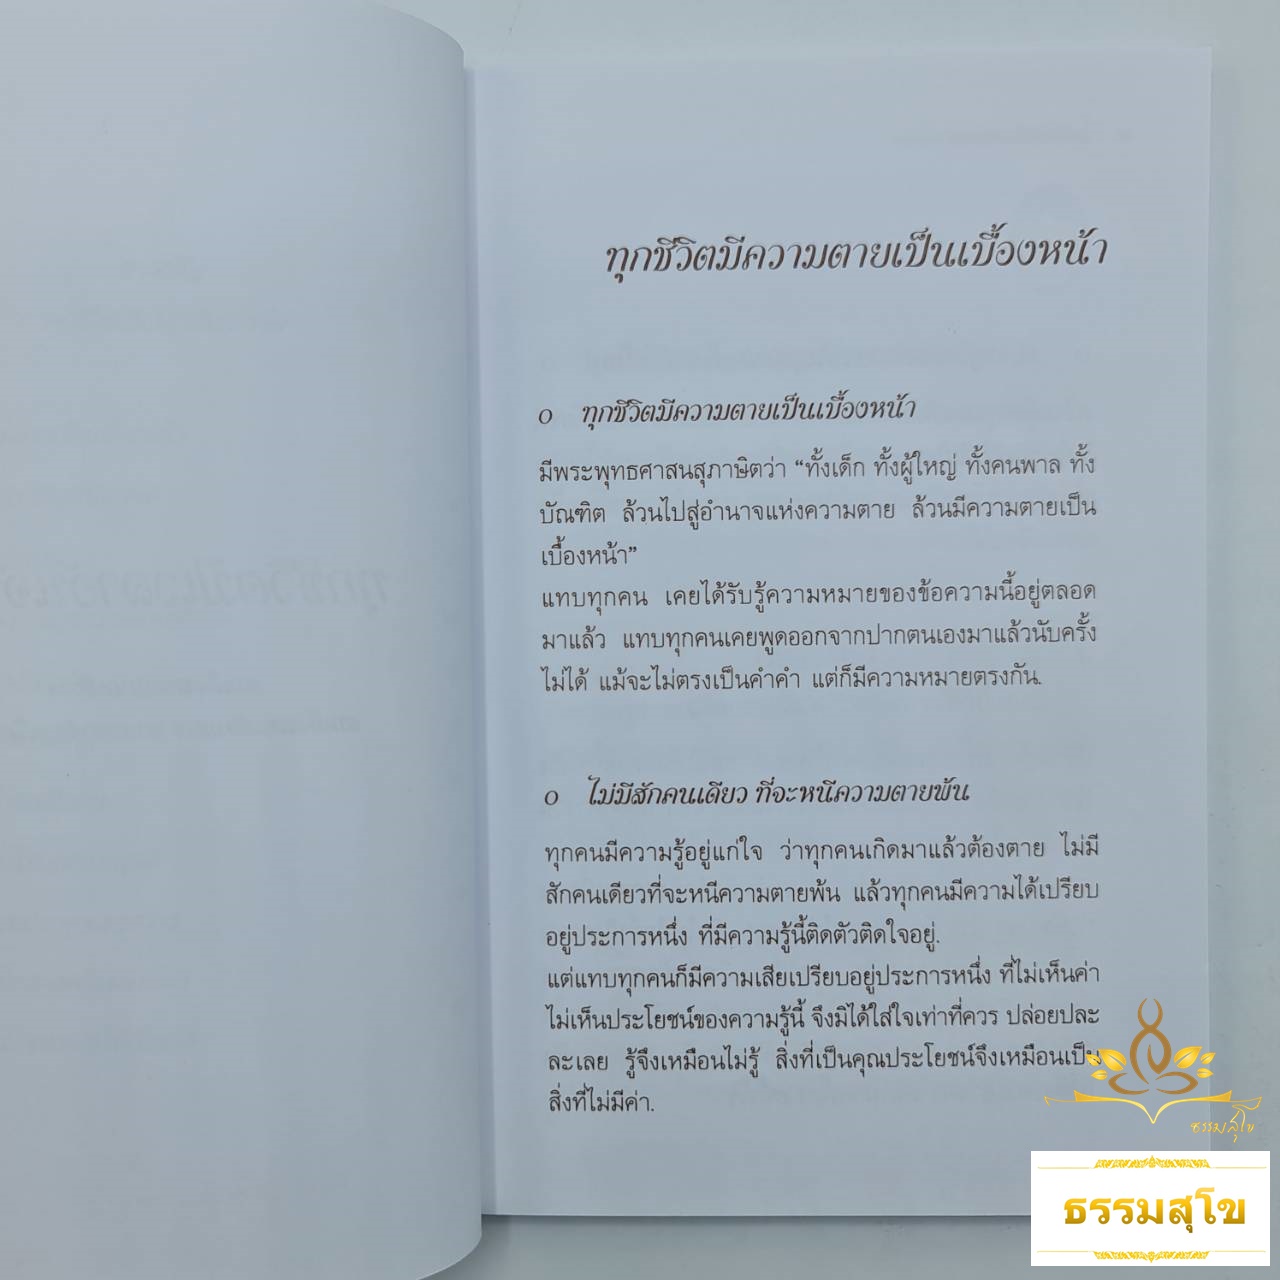 ทุกชีวิตมีความตายเป็นเบื้องหน้า
๐ ทุกชีวิตมีความตายเป็นเบื้องหน้า
มีพระพุทธศาสนสุภาษิตว่า “ทั้งเด็ก ทั้งผู้ใหญ่ ทั้งคนพาล ทั้ง
บัณฑิต ล้วนไปสู่อำนาจแห่งความตาย ล้วนมีความตายเป็น
เบื้องหน้า”
แทบทุกคน เคยได้รับรู้ความหมายของข้อความนี้อยู่ตลอด
มาแล้ว แทบทุกคนเคยพูดออกจากปากตนเองมาแล้วนับครั้ง
ไม่ได้ แม้จะไม่ตรงเป็นคำคำ แต่ก็มีความหมายตรงกัน.
๐ ไม่มีสักคนเดียว ที่จะหนีความตายพ้น
ทุกคนมีความรู้อยู่แก่ใจ ว่าทุกคนเกิดมาแล้วต้องตาย ไม่มี
สักคนเดียวที่จะหนีความตายพ้น แล้วทุกคนมีความได้เปรียบ
อยู่ประการหนึ่ง ที่มีความรู้นี้ติดตัวติดใจอยู่.
แต่แทบทุกคนก็มีความเสียเปรียบอยู่ประการหนึ่ง ที่ไม่เห็นค่า
ไม่เห็นประโยชน์ของความรู้นี้ จึงมิได้ใส่ใจเท่าที่ควร ปล่อยปละ
ละเลย รู้จึงเหมือนไม่รู้ สิ่งที่เป็นคุณประโยชน์จึงเหมือนเป็น
สิ่งที่ไม่มีค่า.
ธรรมสุโข
ธรรมสุโข